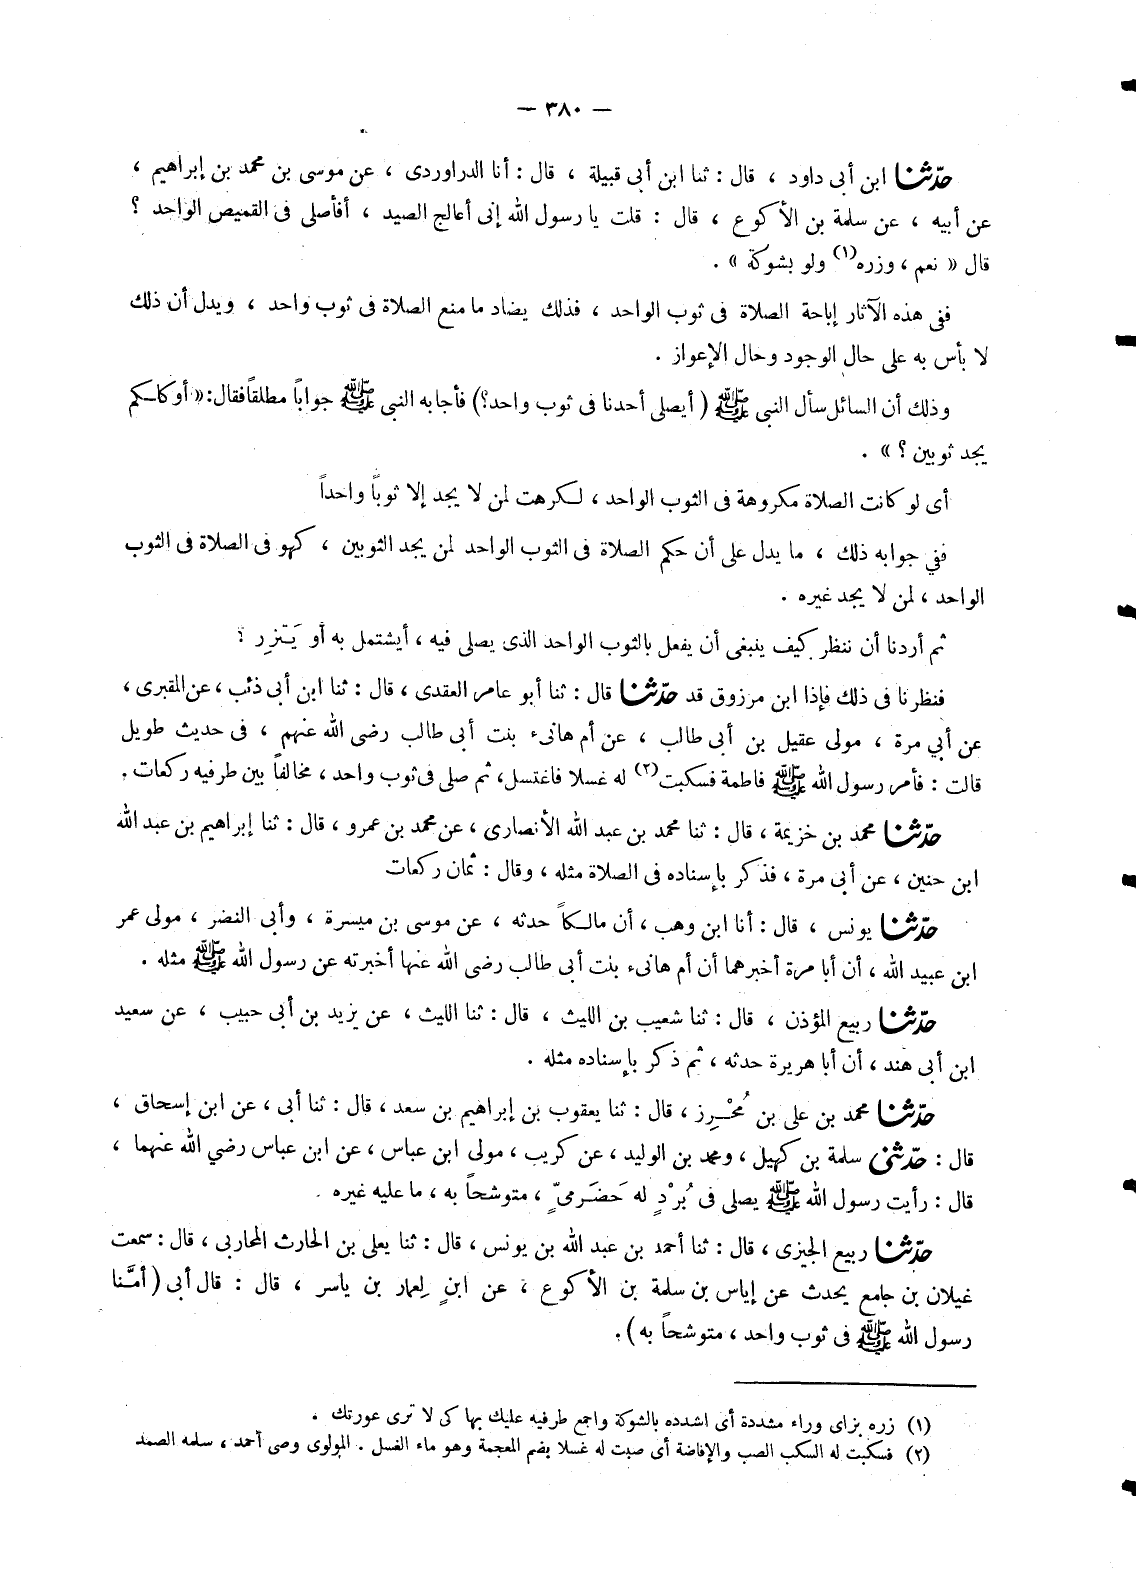 — ٣٨٠ —
حدّثنا ابن أبى داود ، قال : ثنا ابن أبى قبيلة ، قال : أنا الدراوردى ، عن موسى بن محمد بن إبراهيم ،
عن أبيه ، عن سلمة بن الأكوع ، قال : قلت يا رسول الله إنى أعالج الصيد ، أفأصلى فى القميص الواحد ؟
قال « نعم ، وزره(١) ولو بشوكة » .
ففى هذه الآثار إباحة الصلاة فى ثوب الواحد ، فذلك يضاد ما منع الصلاة فى ثوب واحد ، ويدل أن ذلك
لا بأس به على حال الوجود وحال الإعواز .
وذلك أن السائل سأل النبى ﷺ ( أيصلى أحدنا فى ثوب واحد؟) فأجابه النبى ﷺ جواباً مطلقاً فقال: « أو كلكم
يجد ثوبين ؟ » .
أى لو كانت الصلاة مكروهة فى الثوب الواحد ، لكرهت لمن لا يجد إلا ثوباً واحداً
ففي جوابه ذلك ، ما يدل على أن حكم الصلاة فى الثوب الواحد لمن يجد الثوبين ، كهو فى الصلاة فى الثوب
الواحد ، لمن لا يجد غيره .
ثم أردنا أن ننظر كيف ينبغى أن يفعل بالثوب الواحد الذى يصلى فيه ، أيشتمل به أو يَتّزِر ؟
فنظرنا فى ذلك فإذا ابن مرزوق قد حدّثنا قال : ثنا أبو عامر العقدى ، قال : ثنا ابن أبى ذئب ، عن المقبرى ،
عن أبي مرة ، مولى عقيل بن أبى طالب ، عن أم هانىء بنت أبى طالب رضى الله عنهم ، فى حديث طويل
قالت : فأمر رسول الله ﷺ فاطمة فسكبت(٢) له غسلا فاغتسل، ثم صلى فى ثوب واحد ، مخالفاً بين طرفيه ركعات .
حدّثنا محمد بن خزيمة ، قال : ثنا محمد بن عبد الله الأنصارى ، عن محمد بن عمرو ، قال : ثنا إبراهيم بن عبد الله
ابن حنين ، عن أبى مرة ، فذكر بإسناده فى الصلاة مثله ، وقال : ثمان ركعات
حدّثنا يونس ، قال : أنا ابن وهب ، أن مالكاً حدثه ، عن موسى بن ميسرة ، وأبى النضر ، مولى عمر
ابن عبيد الله ، أن أبا مرة أخبرهما أن أم هانىء بنت أبى طالب رضى الله عنها أخبرته عن رسول الله ﷺ مثله .
حدّثنا ربيع المؤذن ، قال : ثنا شعيب بن الليث ، قال : ثنا الليث ، عن يزيد بن أبى حبيب ، عن سعيد
ابن أبى هند ، أن أبا هريرة حدثه ، ثم ذكر بإسناده مثله .
حدّثنا محمد بن على بن مُحْرِز ، قال : ثنا يعقوب بن إبراهيم بن سعد ، قال : ثنا أبى ، عن ابن إسحاق ،
قال : حدّثنى سلمة بن كهيل ، ومحمد بن الوليد ، عن كريب ، مولى ابن عباس ، عن ابن عباس رضي الله عنهما ،
قال : رأيت رسول الله ﷺ يصلى فى بُرْدٍ له حَضَرمىّ ٍ ، متوشحاً به ، ما عليه غيره .
حدّثنا ربيع الجيزى ، قال : ثنا أحمد بن عبد الله بن يونس ، قال : ثنا يعلى بن الحارث المحاربى ، قال : سمعت
غيلان بن جامع يحدث عن إياس بن سلمة بن الأكوع ، عن ابنٍ لِعمار بن ياسر ، قال : قال أبى ( أمَّنا
رسول الله ﷺ فى ثوب واحد ، متوشحاً به ) .
(١) زره بزاى وراء مشددة أى اشدده بالشوكة واجمع طرفيه عليك بها كى لا ترى عورتك .
(٢) فسكبت له السكب الصب والإفاضة أى صبت له غسلا بضم المعجمة وهو ماء الغسل . المولوى وصى أحمد ، سلمه الصمد